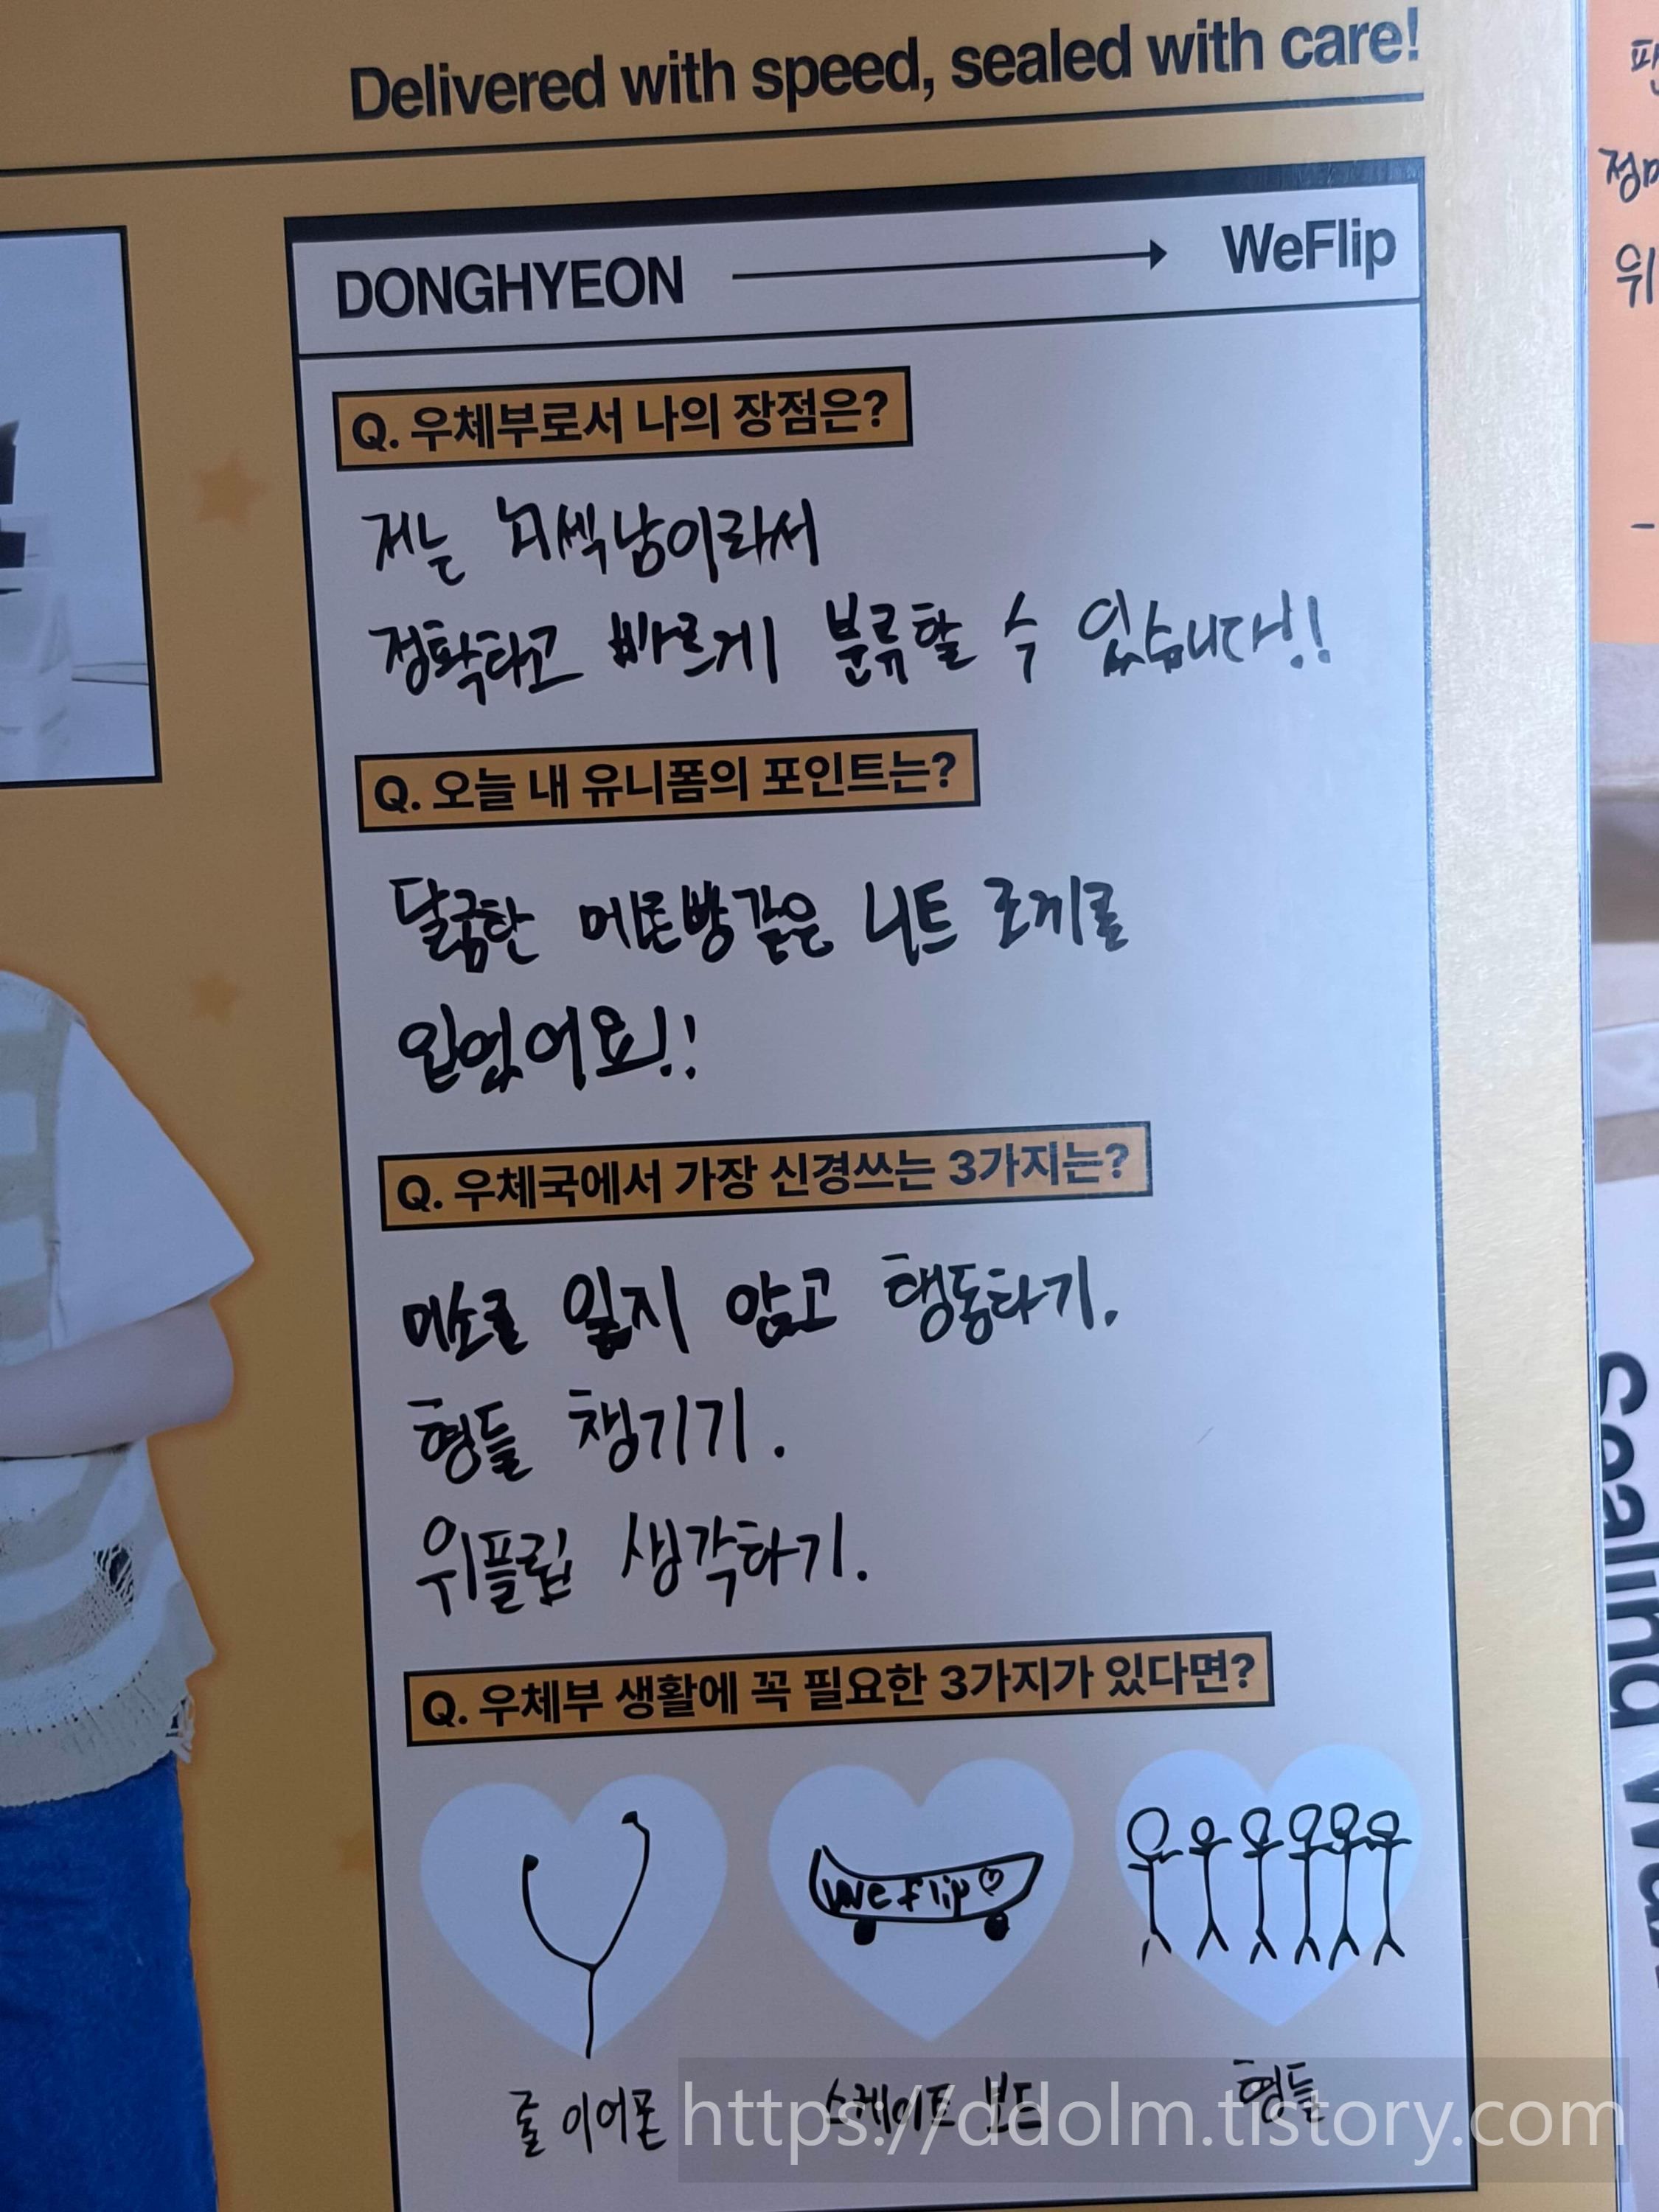 Delivered with speed, sealed with care!
DONGHYEON → WeFlip
Q. 우체부로서 나의 장점은?
저는 뇌섹남이라서
정확하고 빠르게 분류할 수 있습니다!!
Q. 오늘 내 유니폼의 포인트는?
달콤한 메론빵같은 니트 조끼를
입었어요!!
Q. 우체국에서 가장 신경쓰는 3가지는?
미소를 잃지 않고 행동하기.
형들 챙기기.
위플립 생각하기.
Q. 우체부 생활에 꼭 필요한 3가지가 있다면?
WeFlip
줄 이어폰 스케이트 보드 형들
https://ddolm.tistory.com
위